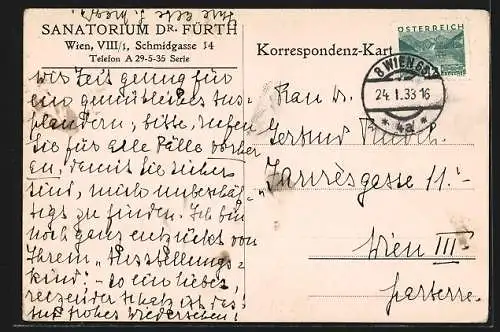 SANATORIUM DR. FÜRTH
Wien, VIII/1, Schmidgasse 14
Telefon A 29-5-35 Serie
wir Zeit genug für
ein gemütliches Aus-
plaudern, bitte, rufen
Sie für alle Fälle vorher
an, damit Sie sicher
sind, mich unbeschäf-
tigt zu finden. Ich bin
noch ganz entzückt von
Ihrem "Ausstellungs-
kind"! - so ein liebes,
reizender Schatz ist das!
auf frohes Wiedersehen!
Korrespondenz-Karte
ÖSTERREICH
8 WIEN 65
24.I.33 16
* 4a *
Frau Dr.
Gertrud
Jaurèsgasse 11.
Wien III
parterre.